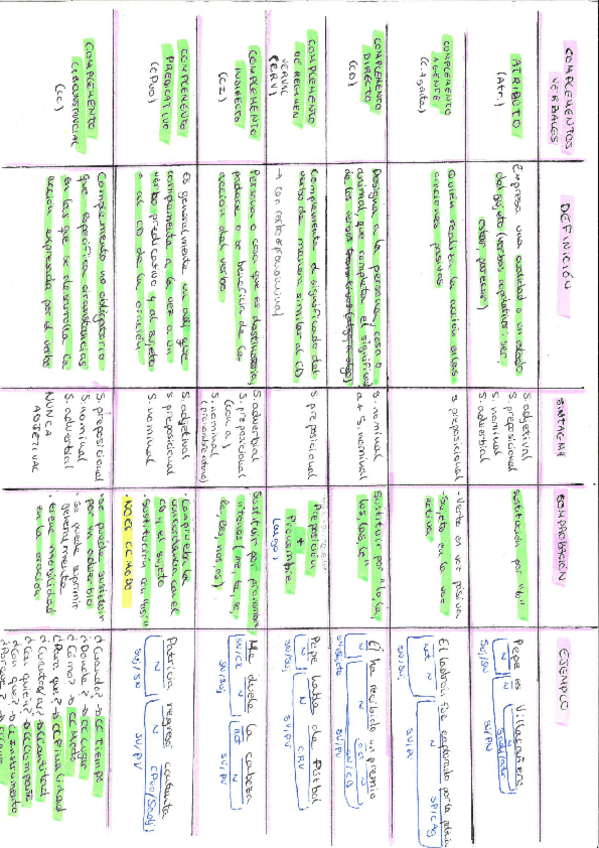 COMPLEMENTOS
VERBALES
DEFINICIÓN
SINTAGMA
COMPROBACIÓN
EJEMPLO
ATRIBUTO
(Atr.)
Expresa una cualidad o un estado
del sujeto (verbos copulativos: ser
estar, parecer)
S. adjetival
S. preposicional
S. nominal
S. adverbial
sustitución por "lo"
Pepe es Villacañero
N
N
SN/Suj
SV/PN
COMPLEMENTO
AGENTE
(C. Agente)
Quién realiza la acción en las
oraciones pasivas
S preposicional
- Verbo en voz pasiva
- Sujeto en la voz
activa
El ladrón fue capturado por la policía
N
N
SP/CAg
SN/Suj
SV/PV
COMPLEMENTO
DIRECTO
(CD)
Designa a la persona, cosa o
animal, que completa el significado
de los verbos transitivos
S. nominal
a + S. nominal
Sustituir por "lo, la,
los, las, le"
Él ha recibido un premio
N
N
SN/CD
SN/Sujeto
SV/PV
COMPLEMENTO
DE REGIMEN
VERVAL
(C.RV)
Complementa el significado del
verbo de manera similar al CD
→ Con verbo + pronominal
S preposicional
Preposición
+
Pronombre
Pepe habla de fútbol
N
N
CRV
SN/Suj
SV/PV
COMPLEMENTO
INDIRECTO
(CI)
Persona o cosa que es destinatario,
padece o se beneficia de la
acción del verbo
S. adverbial
S. preposicional
(con a)
S. nominal
(pronombre átono)
Sustituir por pronombres
átonos (me, te, se,
le, les, nos, os)
Me duele la cabeza
N
N
SN/CI
SN/Suj
SV/PV
COMPLEMENTO
PREDICATIVO
(CPvo)
Es generalmente un adj que
complementa a la vez a un
verbo predicativo y al sujeto
o al CD de la oración
S adjetival
S preposicional
S. nominal
- Comprueba la
concordancia con el
CD y el sujeto
- Sustitución con "así"
- NO ES CC MODO
Patricia regresó contenta
N
N
CPvo/Sadj
SN/Suj
SV/PV
COMPLEMENTO
CIRCUNSTANCIAL
(CC)
Complemento no obligatorio
que especifica circunstancias
en las que se desarrolla la
acción expresada por el verbo
S. preposicional
S. nominal
S. adverbial
NUNCA
ADJETIVAL
- se puede sustituir
por un adverbio
- Se puede suprimir
generalmente
- tiene movilidad
en la oración
¿Cuándo? → CC Tiempo
¿Dónde? → CC Lugar
¿Cómo? → CC Modo
¿Para qué? → CC Finalidad
¿Cuánto/a/s? → CC Cantidad
¿Con quién? → CC Compañía
¿Con qué? → CC Instrumento
¿Por qué? → CC Causa